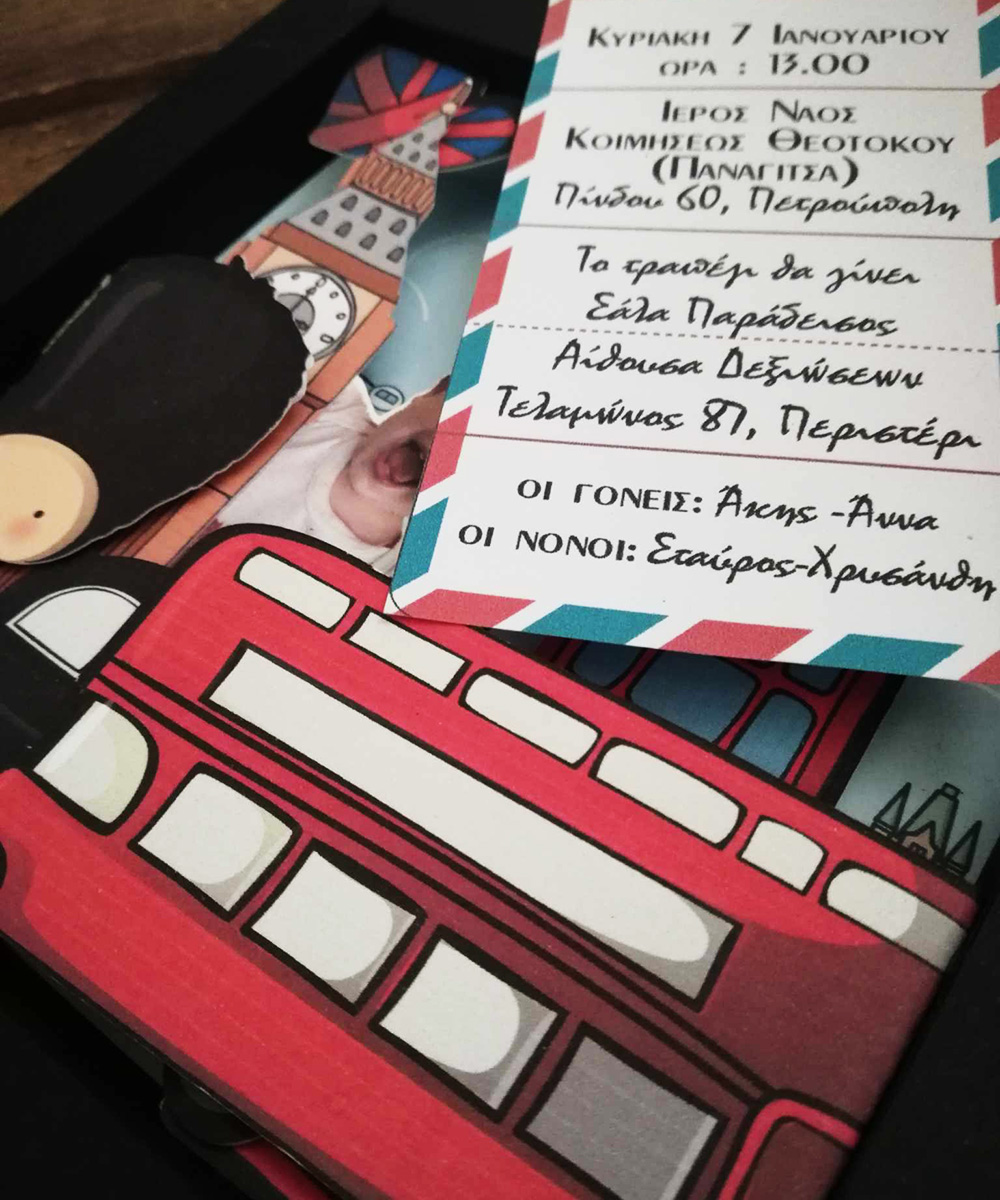 ΚΥΡΙΑΚΗ 7 ΙΑΝΟΥΑΡΙΟΥ
ΩΡΑ : 13.00
ΙΕΡΟΣ ΝΑΟΣ
ΚΟΙΜΗΣΕΩΣ ΘΕΟΤΟΚΟΥ
(ΠΑΝΑΓΙΤΣΑ)
Πίνδου 60, Πετρούπολη
Το τραπέζι θα γίνει
Σάλα Παράδεισος
Αίθουσα Δεξιώσεων
Τελαμώνος 87, Περιστέρι
ΟΙ ΓΟΝΕΙΣ: Άκης -Άννα
ΟΙ ΝΟΝΟΙ: Σταύρος-Χρυσάνθη